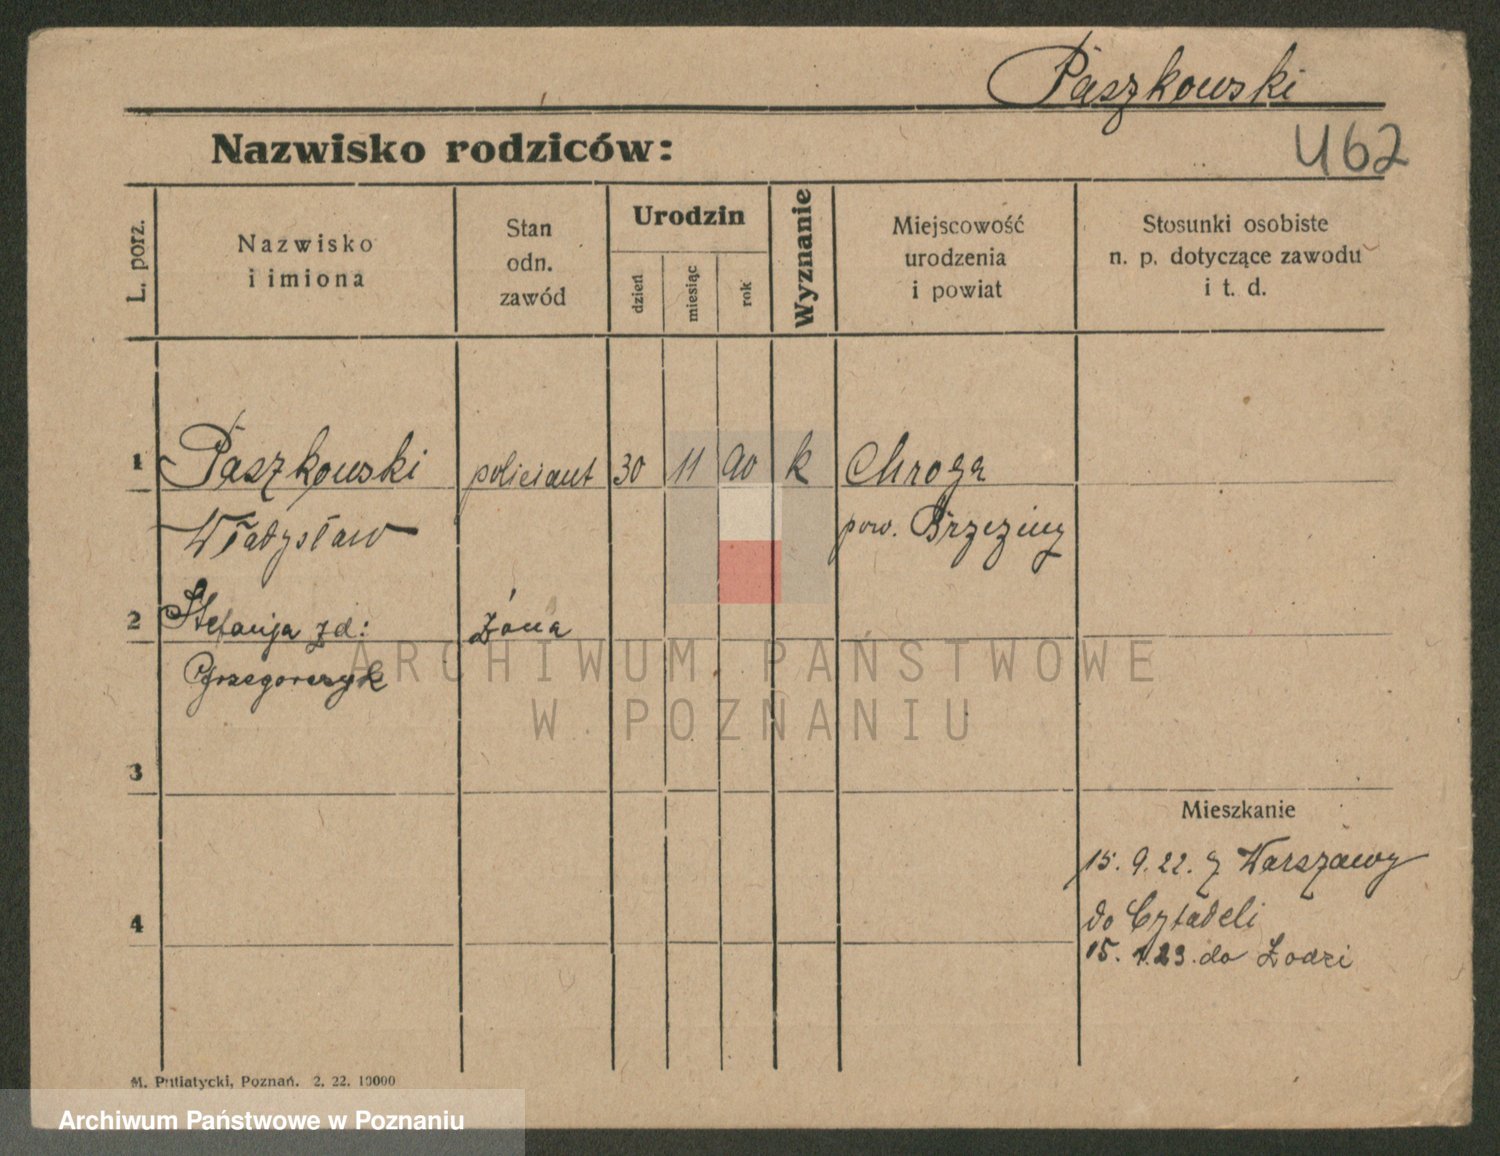 Paszkowski
Nazwisko rodziców:
462
L. porz.
Nazwisko
i imiona
Stan
odn.
zawód
Urodzin
dzień
miesiąc
rok
Wyznanie
Miejscowość
urodzenia
i powiat
Stosunki osobiste
n. p. dotyczące zawodu
i t. d.
1 Paszkowski policiant 30 11 90 k Chroga
Władysław pow. Brzeziny
2 Stefanja zd: Żona
Grzegorczyk
3
Mieszkanie
15. 9. 22. z Warszawy
4 do Cytadeli
15. 1. 23. do Łodzi
M. Putiatycki, Poznań. 2. 22. 10000
ARCHIWUM PAŃSTWOWE
W POZNANIU
Archiwum Państwowe w Poznaniu